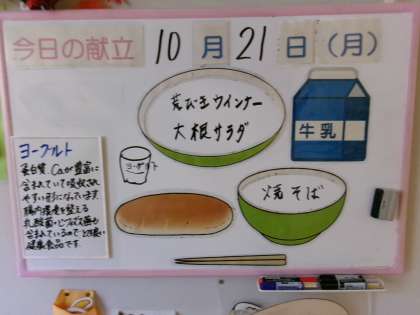 今日の献立 10月21日(月)
荒びきウインナー
大根サラダ
牛乳
ヨーグルト
焼そば
ヨーグルト
蛋白質、Caが豊富に
含まれていて吸収され
やすい形になっています
腸内環境を整える
乳酸菌・ビフィズス菌も
含まれているのでとても良い
健康食品です。